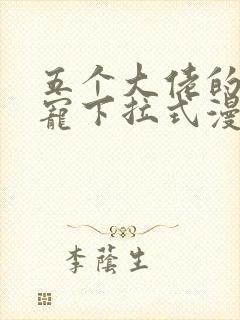 五个大佬的
宠下拉式漫
李蔭生